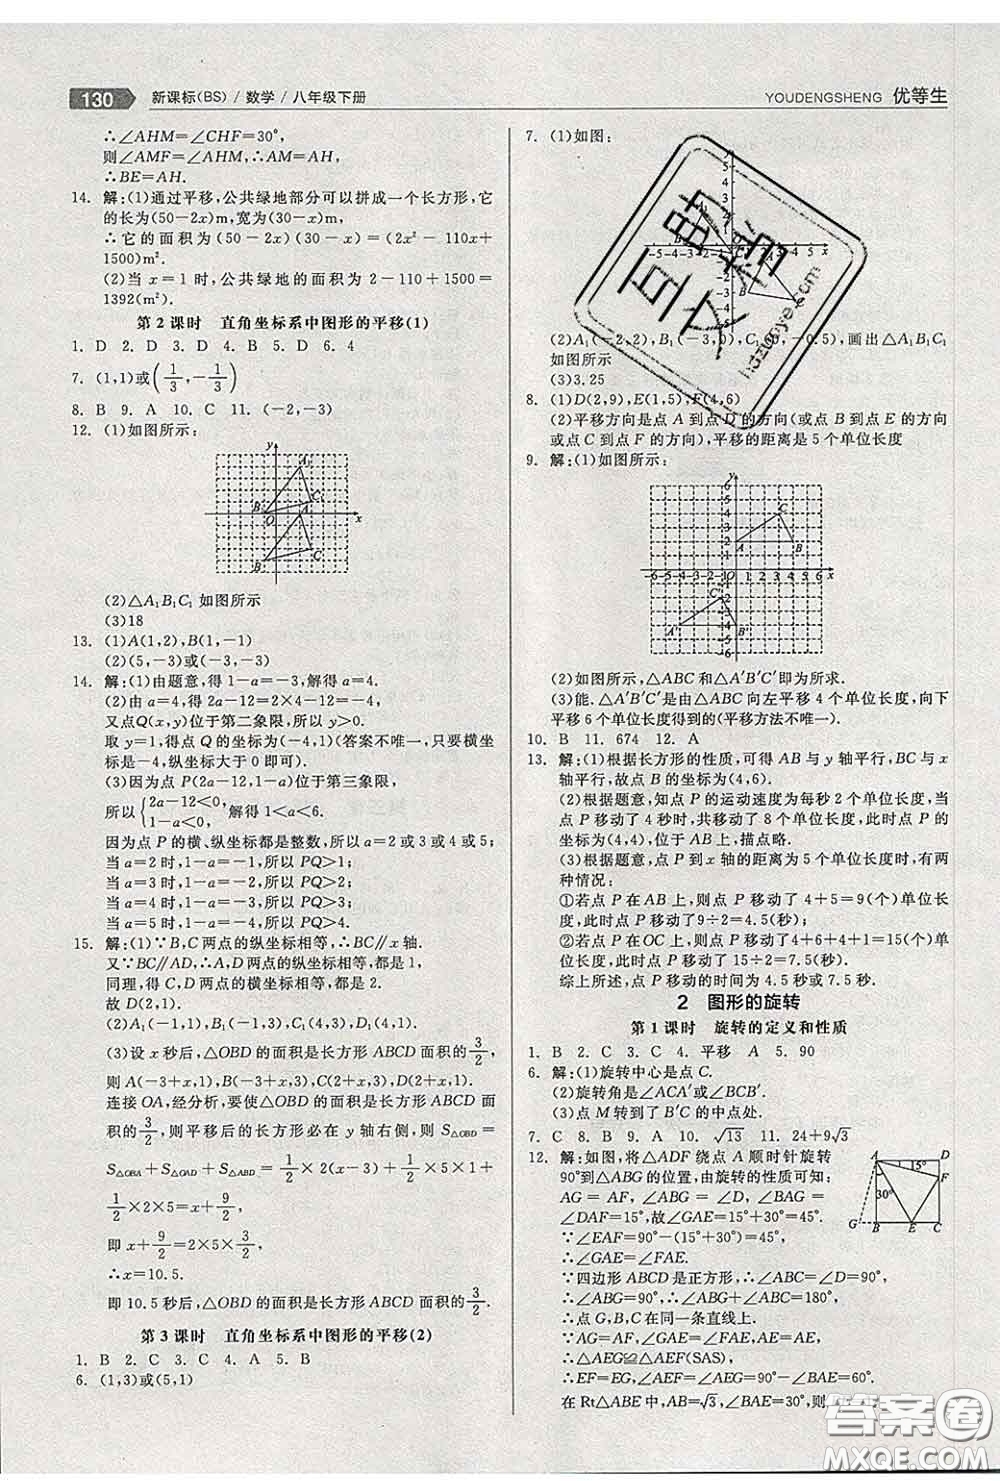 130 新课标(BS) / 数学 / 八年级下册
YOUDENGSHENG 优等生
∴∠AHM=∠CHF=30°,
则∠AMF=∠AHM,∴AM=AH,
∴BE=AH.
14. 解:(1)通过平移,公共绿地部分可以拼成一个长方形,它
的长为(50-2x)m,宽为(30-x)m,
∴它的面积为(50-2x)(30-x)=(2x²-110x+
1500)m².
(2)当x=1时,公共绿地的面积为2-110+1500=
1392(m²).
第2课时 直角坐标系中图形的平移(1)
1. D 2. D 3. D 4. B 5. D 6. 4
7. (1,1)或(1/3,-1/3)
8. B 9. A 10. C 11. (-2,-3)
12. (1)如图所示:
(2)△A₁B₁C₁如图所示
(3)18
13. (1)A(1,2),B(1,-1)
(2)(5,-3)或(-3,-3)
14. 解:(1)由题意,得1-a=-3,解得a=4.
(2)由a=4,得2a-12=2×4-12=-4,
又点Q(x,y)位于第二象限,所以y>0.
取y=1,得点Q的坐标为(-4,1)(答案不唯一,只要横坐
标是-4,纵坐标大于0即可).
(3)因为点P(2a-12,1-a)位于第三象限,
所以{2a-12<0, 1-a<0, 解得1<a<6.
因为点P的横、纵坐标都是整数,所以a=2或3或4或5;
当a=2时,1-a=-1,所以PQ>1;
当a=3时,1-a=-2,所以PQ>2;
当a=4时,1-a=-3,所以PQ>3;
当a=5时,1-a=-4,所以PQ>4.
15. 解:(1)∵B,C两点的纵坐标相等,∴BC∥x轴.
又∵BC∥AD,∴A,D两点的纵坐标相等,都是1,
同理,得C,D两点的横坐标相等,都是2.
故D(2,1).
(2)A₁(-1,1),B₁(-1,3),C₁(4,3),D₁(4,1).
(3)设x秒后,△OBD的面积是长方形ABCD面积的3/2,
则A(-3+x,1),B(-3+x,3),C(2+x,3),D(2+x,1).
连接OA,经分析,要使△OBD的面积是长方形ABCD面
积的3/2,则平移后的长方形必在y轴右侧,则S△OBD=
S△OBA+S△OAD+S△ABD=1/2×2×(-3+x)+1/2×5×1+
1/2×2×5=x+9/2,
即x+9/2=2×5×3/2,
∴x=10.5.
即10.5秒后,△OBD的面积是长方形ABCD面积的3/2.
第3课时 直角坐标系中图形的平移(2)
1. B 2. C 3. C 4. A 5. B
6. (1,3)或(5,1)
7. (1)如图:
(2)A₁(-2,3),B₁(-3,0),C₁
如图所示
(3)3.25
8. (1)D(2,9),E(1,5),F(4,6)
(2)平移方向是点A到点D的方向(或点B到点E的方向
或点C到点F的方向),平移的距离是5个单位长度
9. 解:(1)如图所示:
(2)如图所示,△ABC和△A′B′C′即为所求.
(3)能.△A′B′C′是由△ABC向左平移4个单位长度,向下
平移6个单位长度得到的(平移方法不唯一).
10. B 11. 674 12. A
13. 解:(1)根据长方形的性质,可得AB与y轴平行,BC与x
轴平行,故点B的坐标为(4,6).
(2)根据题意,知点P的运动速度为每秒2个单位长度,当
点P移动了4秒时,共移动了8个单位长度,此时点P的
坐标为(4,4),位于AB上,描点略.
(3)根据题意,知点P到x轴的距离为5个单位长度时,有两
种情况:
①若点P在AB上,则点P移动了4+5=9(个)单位长
度,此时点P移动了9÷2=4.5(秒);
②若点P在OC上,则点P移动了4+6+4+1=15(个)
单位长度,此时点P移动了15÷2=7.5(秒).
综上所述,点P移动的时间为4.5秒或7.5秒.
2 图形的旋转
第1课时 旋转的定义和性质
1. B 2. C 3. C 4. 平移 A 5. 90
6. 解:(1)旋转中心是点C.
(2)旋转角是∠ACA′或∠BCB′.
(3)点M转到了B′C的中点处.
7. C 8. B 9. A 10. √13 11. 24+9√3
12. 解:如图,将△ADF绕点A顺时针旋转
90°到△ABG的位置,由旋转的性质可知:
AG=AF,∠ABG=∠D,∠BAG
=∠DAF=15°,故∠GAE=15°+30°=45°.
∵∠EAF=90°-15°-30°=45°,
∴∠GAE=∠FAE.
∵四边形ABCD是正方形,∴∠ABC=∠D=90°,
∴∠ABG=∠D=90°,∴∠ABG+∠ABC=180°,
∴点G,B,C在同一条直线上.
∵AG=AF,∠GAE=∠FAE,AE=AE,
∴△AEG≌△AEF(SAS),
∴EF=EG,∠AEF=∠AEG=90°-∠BAE=60°.
在Rt△ABE中,AB=√3,∠BAE=30°,则
答案圈
MXQE.COM